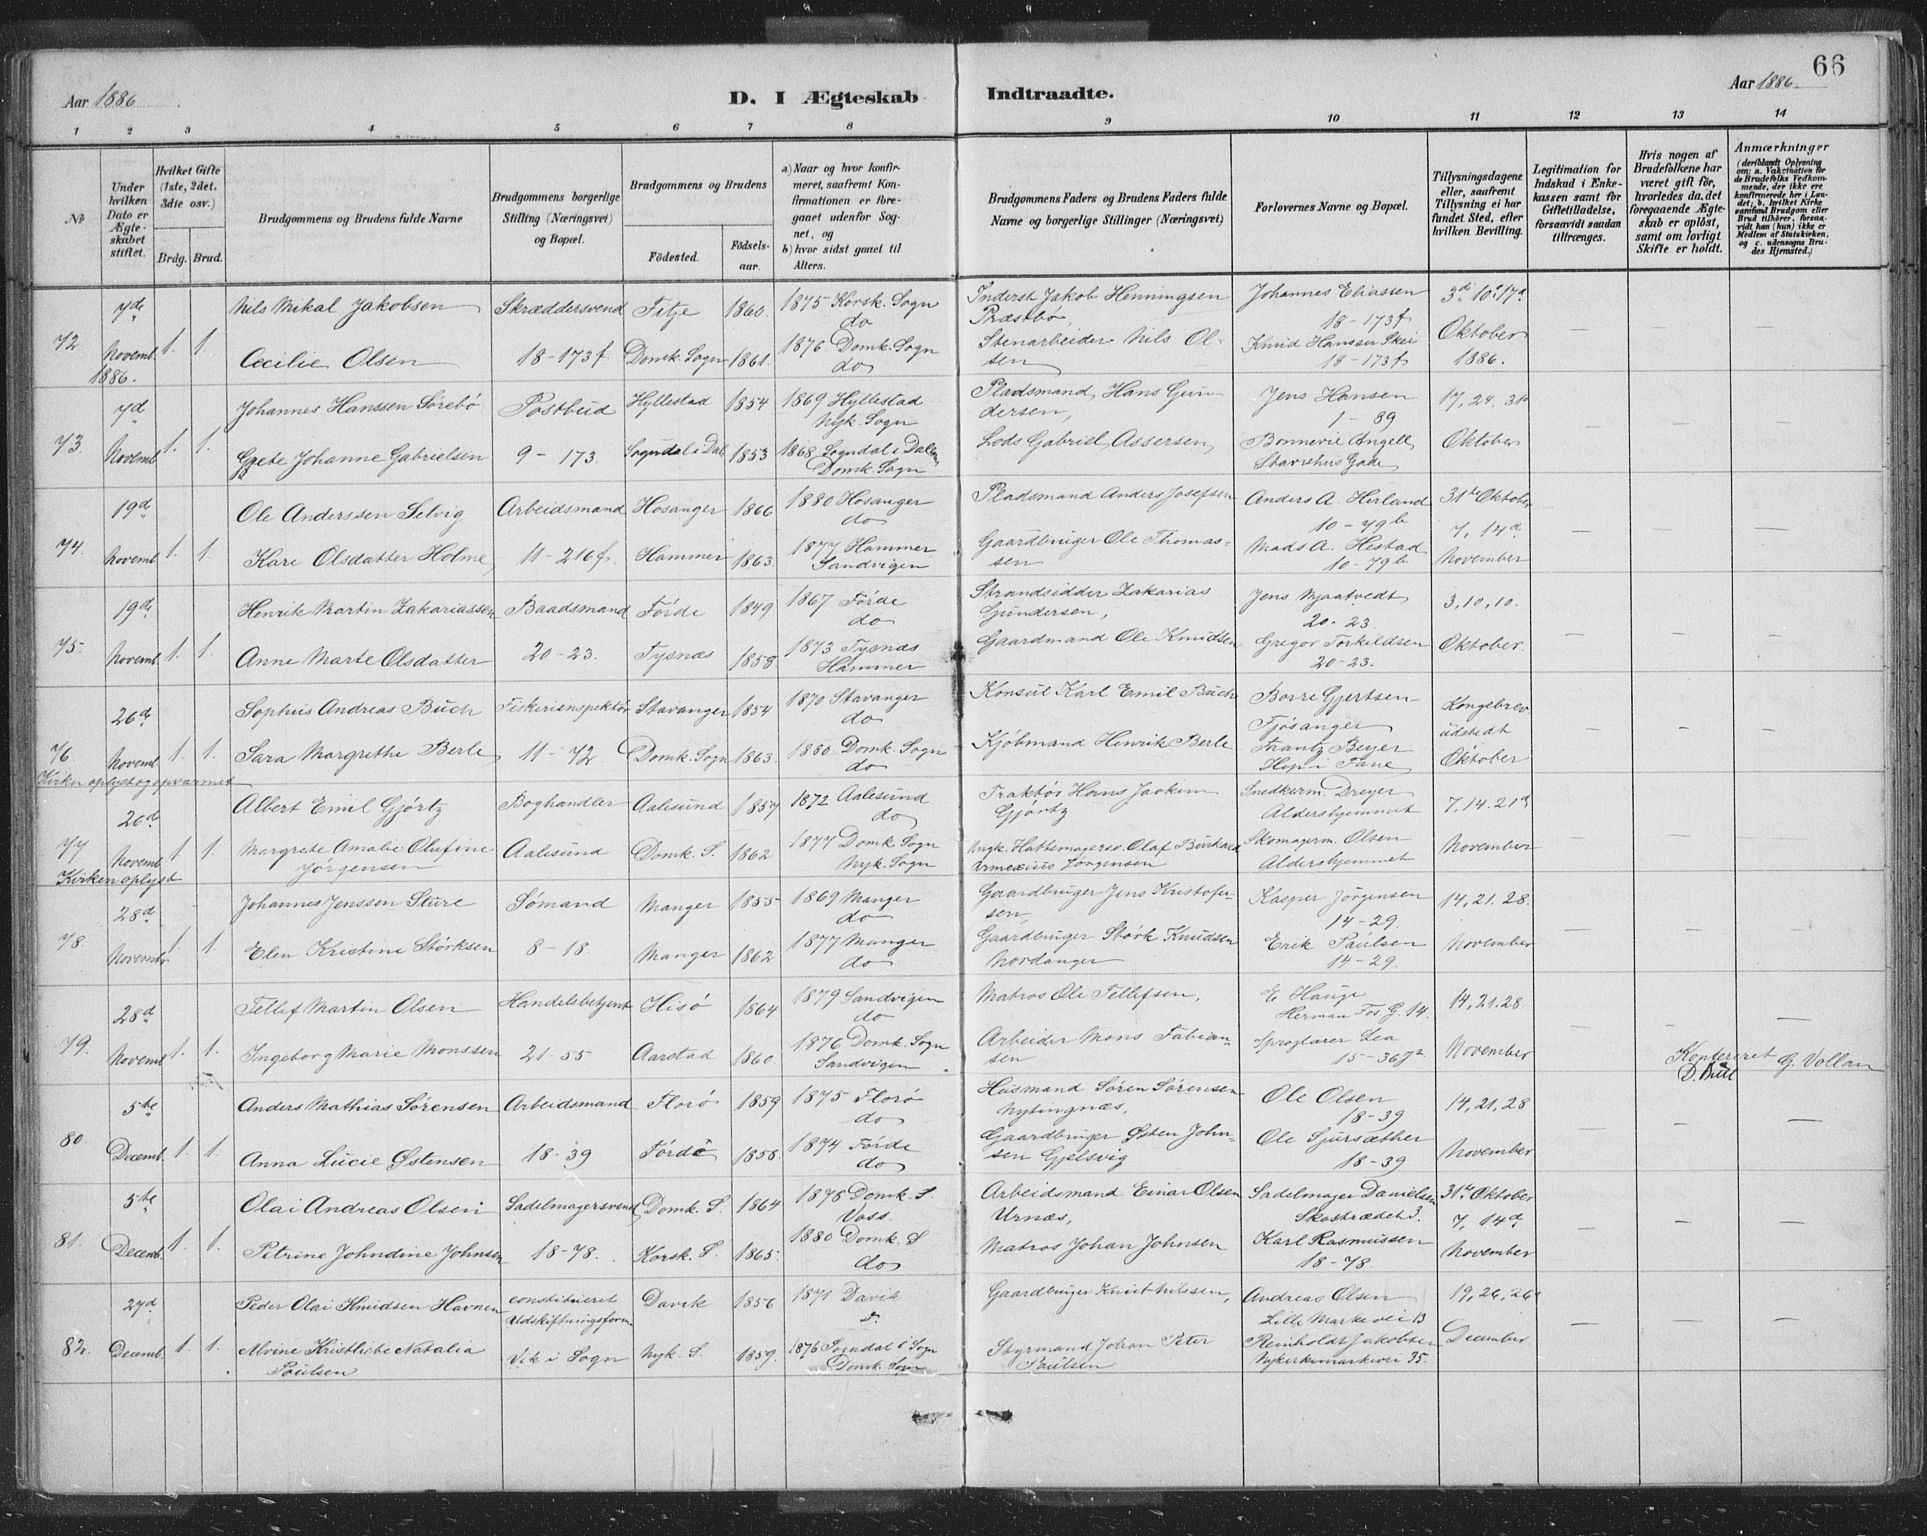 66
Aar 1886
D. I Ægteskab Indtraadte.
Aar 1886.
1 2 3 4 5 6 7 8 9 10 11 12 13 14
No
Under hvilken Dato er Ægteskabet stiftet.
Hvilket Gifte (1ste, 2det, 3die osv.)
Brdg. Brud.
Brudgommens og Brudens fulde Navne
Brudgommens borgerlige Stilling (Næringsvei) og Bopæl.
Brudgommens og Brudens
Fødested. Fødselsaar.
a) Naar og hvor konfirmeret, saafremt Konfirmationen er foregaaet udenfor Sognet, og
b) hvor sidst gaaet til Alters.
Brudgommens Faders og Brudens Faders fulde Navne og borgerlige Stillinger (Næringsvei)
Forlovernes Navne og Bopæl.
Tillysningsdagene eller, saafremt Tillysning ei har fundet Sted, efter hvilken Bevilling.
Legitimation for Indskud i Enkekassen samt for Giftetilladelse, forsaavidt saadan tiltrænges.
Hvis nogen af Brudefolkene har været gift før, hvorledes da det foregaaende Ægteskab er opløst, samt om lovligt Skifte er holdt.
Anmærkninger
(deriblandt Oplysning om: a. Vaksination for de Brudefolks Vedkommende, der ikke ere konfirmerede her i Landet; b. hvilket Kirkesamfund Brudgom eller Brud tilhører, forsaavidt han (hun) ikke er Medlem af Statskirken, og c. udensogns Brudes Hjemsted.)
72. 7de Novemb. 1886. 1. 1.
Nils Mikal Jakobsen Skræddersvend Fitje 1860. 1875 Korsk. Sogn do
Inderst Jakob Henningsen Præstbø, Johannes Eliassen 18-173f 3di 10. 17d Oktober 1886.
Cecilie Olsen 18-173f. Domk. Sogn 1861. 1876 Domk. Sogn do
Stenarbeider Nils Olsen Knud Hanssen Skei 18-173f
73. 7d Novemb. 1. 1.
Johannes Hanssen Sørebø Postbud Hyllestad 1854 1869 Hyllestad Nyk. Sogn
Pladsmand Hans Gundersen, Jens Hansen 1-89 17, 24, 31d Oktober
Grete Johanne Gabrielsen 9-173. Sogndal i Dal. 1853 1868 Sogndal i Dalen, Domk. Sogn
Lods Gabriel Assersen, Bonnevie Angell
74. 19d Novemb. 1. 1.
Ole Anderssen Selvig Arbeidsmand Hosanger 1866 1880 Hosanger do
Pladsmand Anders Josefsen Anders A. Herland 10-79b 31te Oktober 7, 14d November
Kari Olsdatter Holme, 11-216f. Hammer 1863. 1877 Hammer Sandvigen
Gaardbruger Ole Thomassen Mads A. Hestad 10-79b
75. 19de Novemb. 1. 1.
Henrik Martin Zakariassen Baadsmand Førde 1849 1867 Førde do
Strandsidder Zakarias Gundersen, Jens Mjaatvedt 20-23. 3, 10, 10. Oktober.
Anne Marte Olsdatter 20-23. Tysnæs 1858. 1873 Tysnæs Hammer
Gaardmand Ole Knudsen Gregor Torkildsen 20-23.
76. 26de Novemb. 1. 1.
Kirken oplyst og opvarmet
Sophus Andreas Buch Fiskeriinspektør Stavanger 1854 1870 Stavanger do
Konsul Karl Emil Buch Børre Gjertsen Fjøsanger Kongebrev udstedt Oktober
Sara Margrethe Berle 11-72. Domk. Sogn 1863. 1880 Domk. Sogn do
Kjøbmand Henrik Berle Frantz Beyer Hop i Fane
77 20de Novemb. 1. 1.
Kirken oplyst
Albert Emil Gjørtz Boghandler Aalesund 1857 1872 Aalesund do
Traktør Hans Joakim Gjørtz Snedkerm. Dreyer Aldershjemmet 7. 14. 21d November
Margrete Amalie Olufine Jørgensen Aalesund Domk. S. 1862 1877 Domk. Sogn Nyk. Sogn
Hattemagersv. Olaf Jørgensen Skomagerm. Olsen Aldershjemmet
78. 28d November 1. 1.
Johannes Jenssen Sture Sømand Manger 1855 1869 Manger do
Gaardbruger Jens Kristofersen, Kasper Jørgensen 14-29. 14, 21. 28. November
Elen Kristine Størksen 8-18. Manger 1862 1877 Manger do
Gaardbruger Størk Knudsen Nordanger Erik Paulsen 14-29.
79. 28d Novemb. 1. 1.
Tellef Martin Olsen Handelsbetjent Hisø 1864 1879 Sandvigen do
Matros Ole Tellefsen, E. Hauge Herman Fos. G. 14. 14, 21. 28 November
Ingeborg Marie Monssen 21-55 Aarstad 1860. 1876 Domk. Sogn Sandvigen
Arbeider Mons Fabiansen Lea 15-367a
Konfereret G. Vollan
80. 5te Decemb. 1. 1.
Anders Mathias Sørensen Arbeidsmand Florø 1859 1875 Florø do
Husmand Søren Sørensen Nytingnæs, Ole Olsen 18-39 14, 21, 28 November
Anna Lucie Østensen 18-39 Førde 1858. 1874 Førde do
Gaardbruger Østen Johnsen Gjelsvig Ole Sjursæther 18-39
81. 5te Decemb. 1. 1.
Olai Andreas Olsen Sadelmagersvend Domk. S. 1864 1878 Domk. S. Voss.
Arbeidsmand Einar Olsen Urnæs, Sadelmager Danielsen Skostrædet 3. 31te Oktober 7, 14d November
Petrine Johndine Johnsen 18-78. Korsk. S. 1865. 1880 Domk. S do
Matros Johan Johnsen Karl Rasmussen 18-78.
82. 27d Decemb. 1. 1.
Peder Olai Knudsen Havnen constitueret Udskiftningsform. Davik 1856 1871 Davik
Gaardbruger Knut Nilssen, Andreas Olsen Lille Markevei 13 19, 26, 26d December
Alvine Kristliebe Natalia Paulsen Vik i Sogn Nyk. S. 1859. 1876 Sogndal i Sogn Domk. Sogn
Styrmand Johan Peter Paulsen Reinholdt Jakobsen Nykirkemarkevei 35.